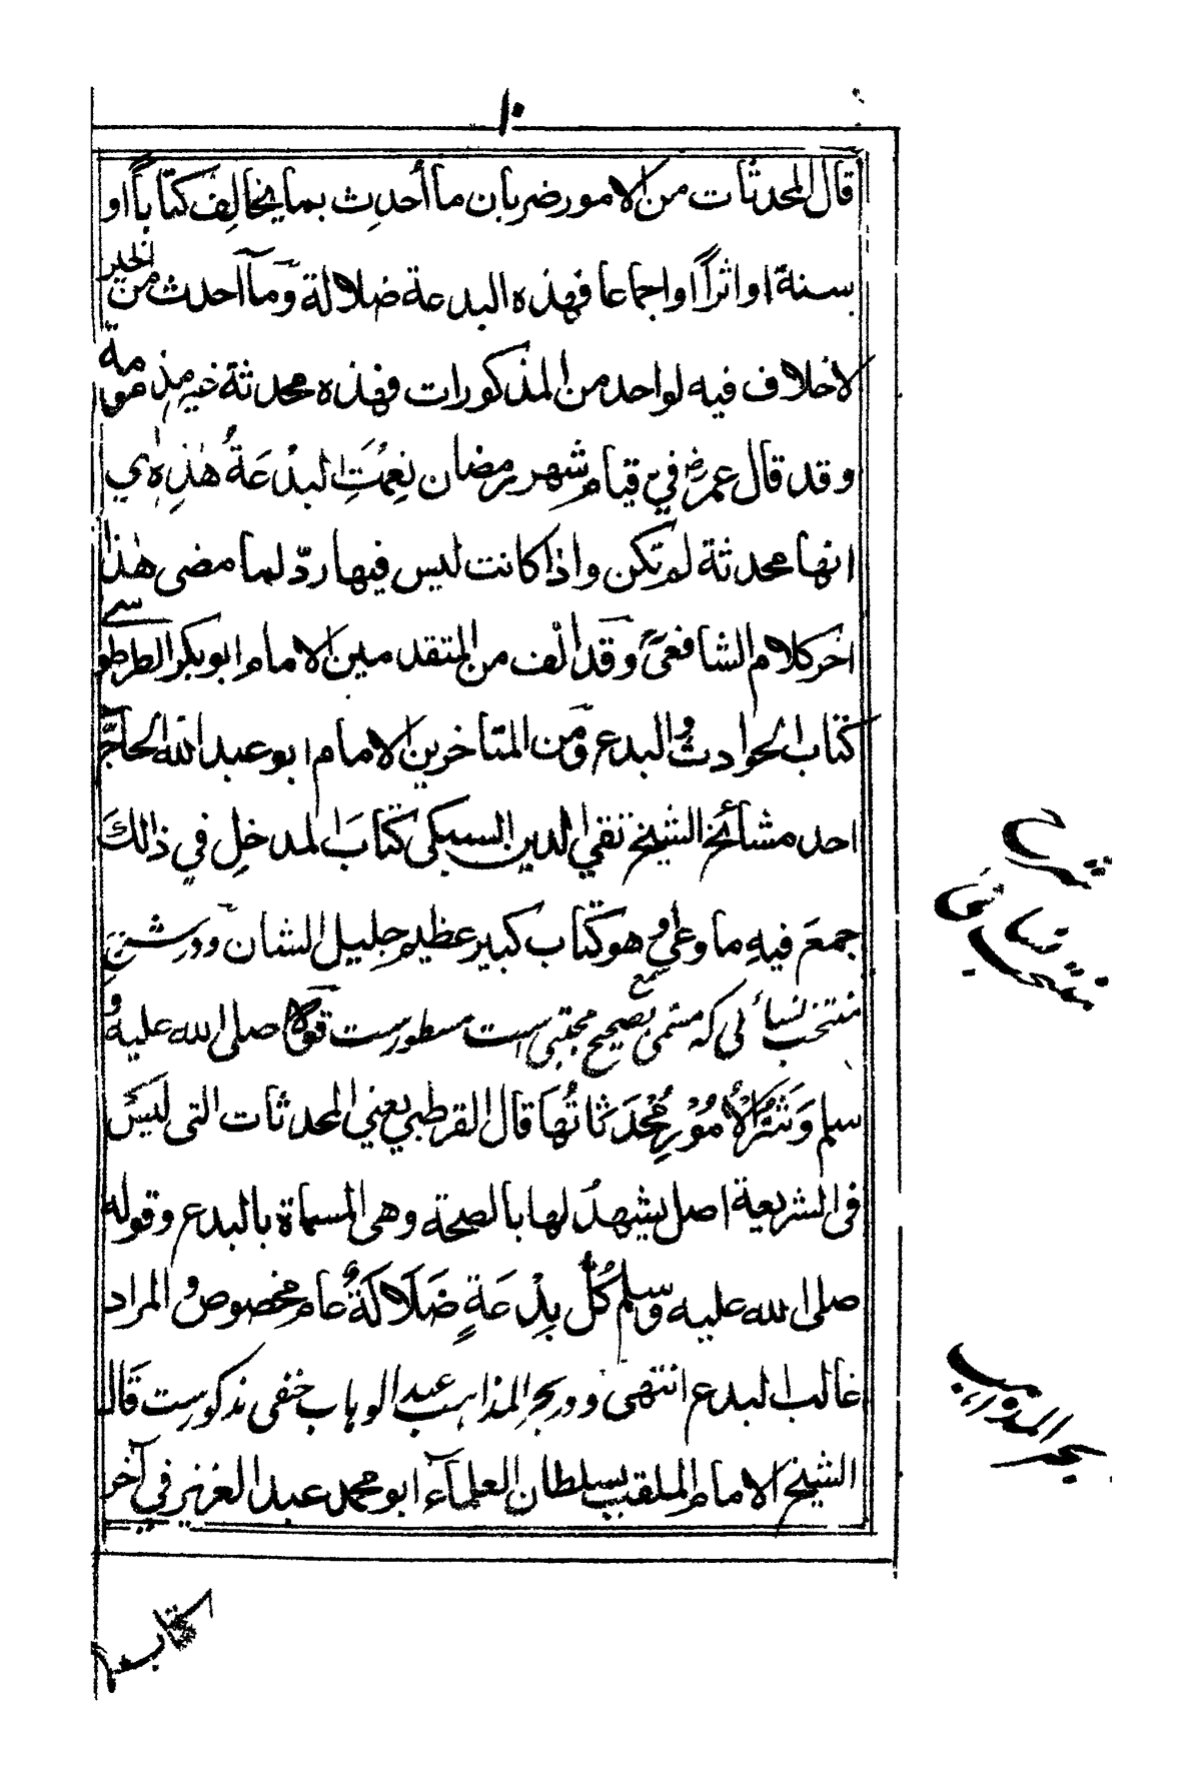 ١٠
قال المحدثات من الامور ضربان ما أحدث بما يخالف كتاباً او
سنةً او اثراً او اجماعا فهذه البدعة ضلالة وما احدث من الخير
لاخلاف فيه لواحد من المذكورات فهذه محدثة غير مذمومة
وقد قال عمرؓ في قيام شهر رمضان نِعْمَتِ البِدْعَةُ هٰذِهٖ ي
انها محدثة لم تكن واذا كانت ليس فيها ردّ لما مضى هٰذا
اخر كلام الشافعىؒ وقد الّف من المتقدمين الامام ابو بكر الطرطوسے
كتاب الحوادث والبدع ومن المتاخرين الامام ابو عبد الله الحاجّ
احد مشائخ الشيخ تقي الدين السبكى كتابَ المدخلِ في ذالكَ
جمعَ فيهِ ما وعٰى وهو كتاب كبير عظيم جليل الشان ودر شرح
منتخب نسائى كه مسمى بصحيح مجتبى است مسطورست قولا صلى الله عليه و
سلم وَشَرُّ الأُمُوْرِ مُحْدَثَاتُهَا قال القرطبي يعني المحدثات التى ليس
فى الشريعة اصل يشهد لها بالصحة وهى المسماة بالبدع وقوله
صلى الله عليه وسلم كُلُّ بِدْعَةٍ ضَلَالَةٌ عام مخصوص والمراد
غالب البدع انتهى ودر بحر المذاهب عبد الوهاب حنفى مذكورست قال
الشيخ الامام الملقب بسلطان العلماء ابو محمد عبد العزيز في آخر
شرح
منتخب نسائى
بحر المذاهب
كتاب